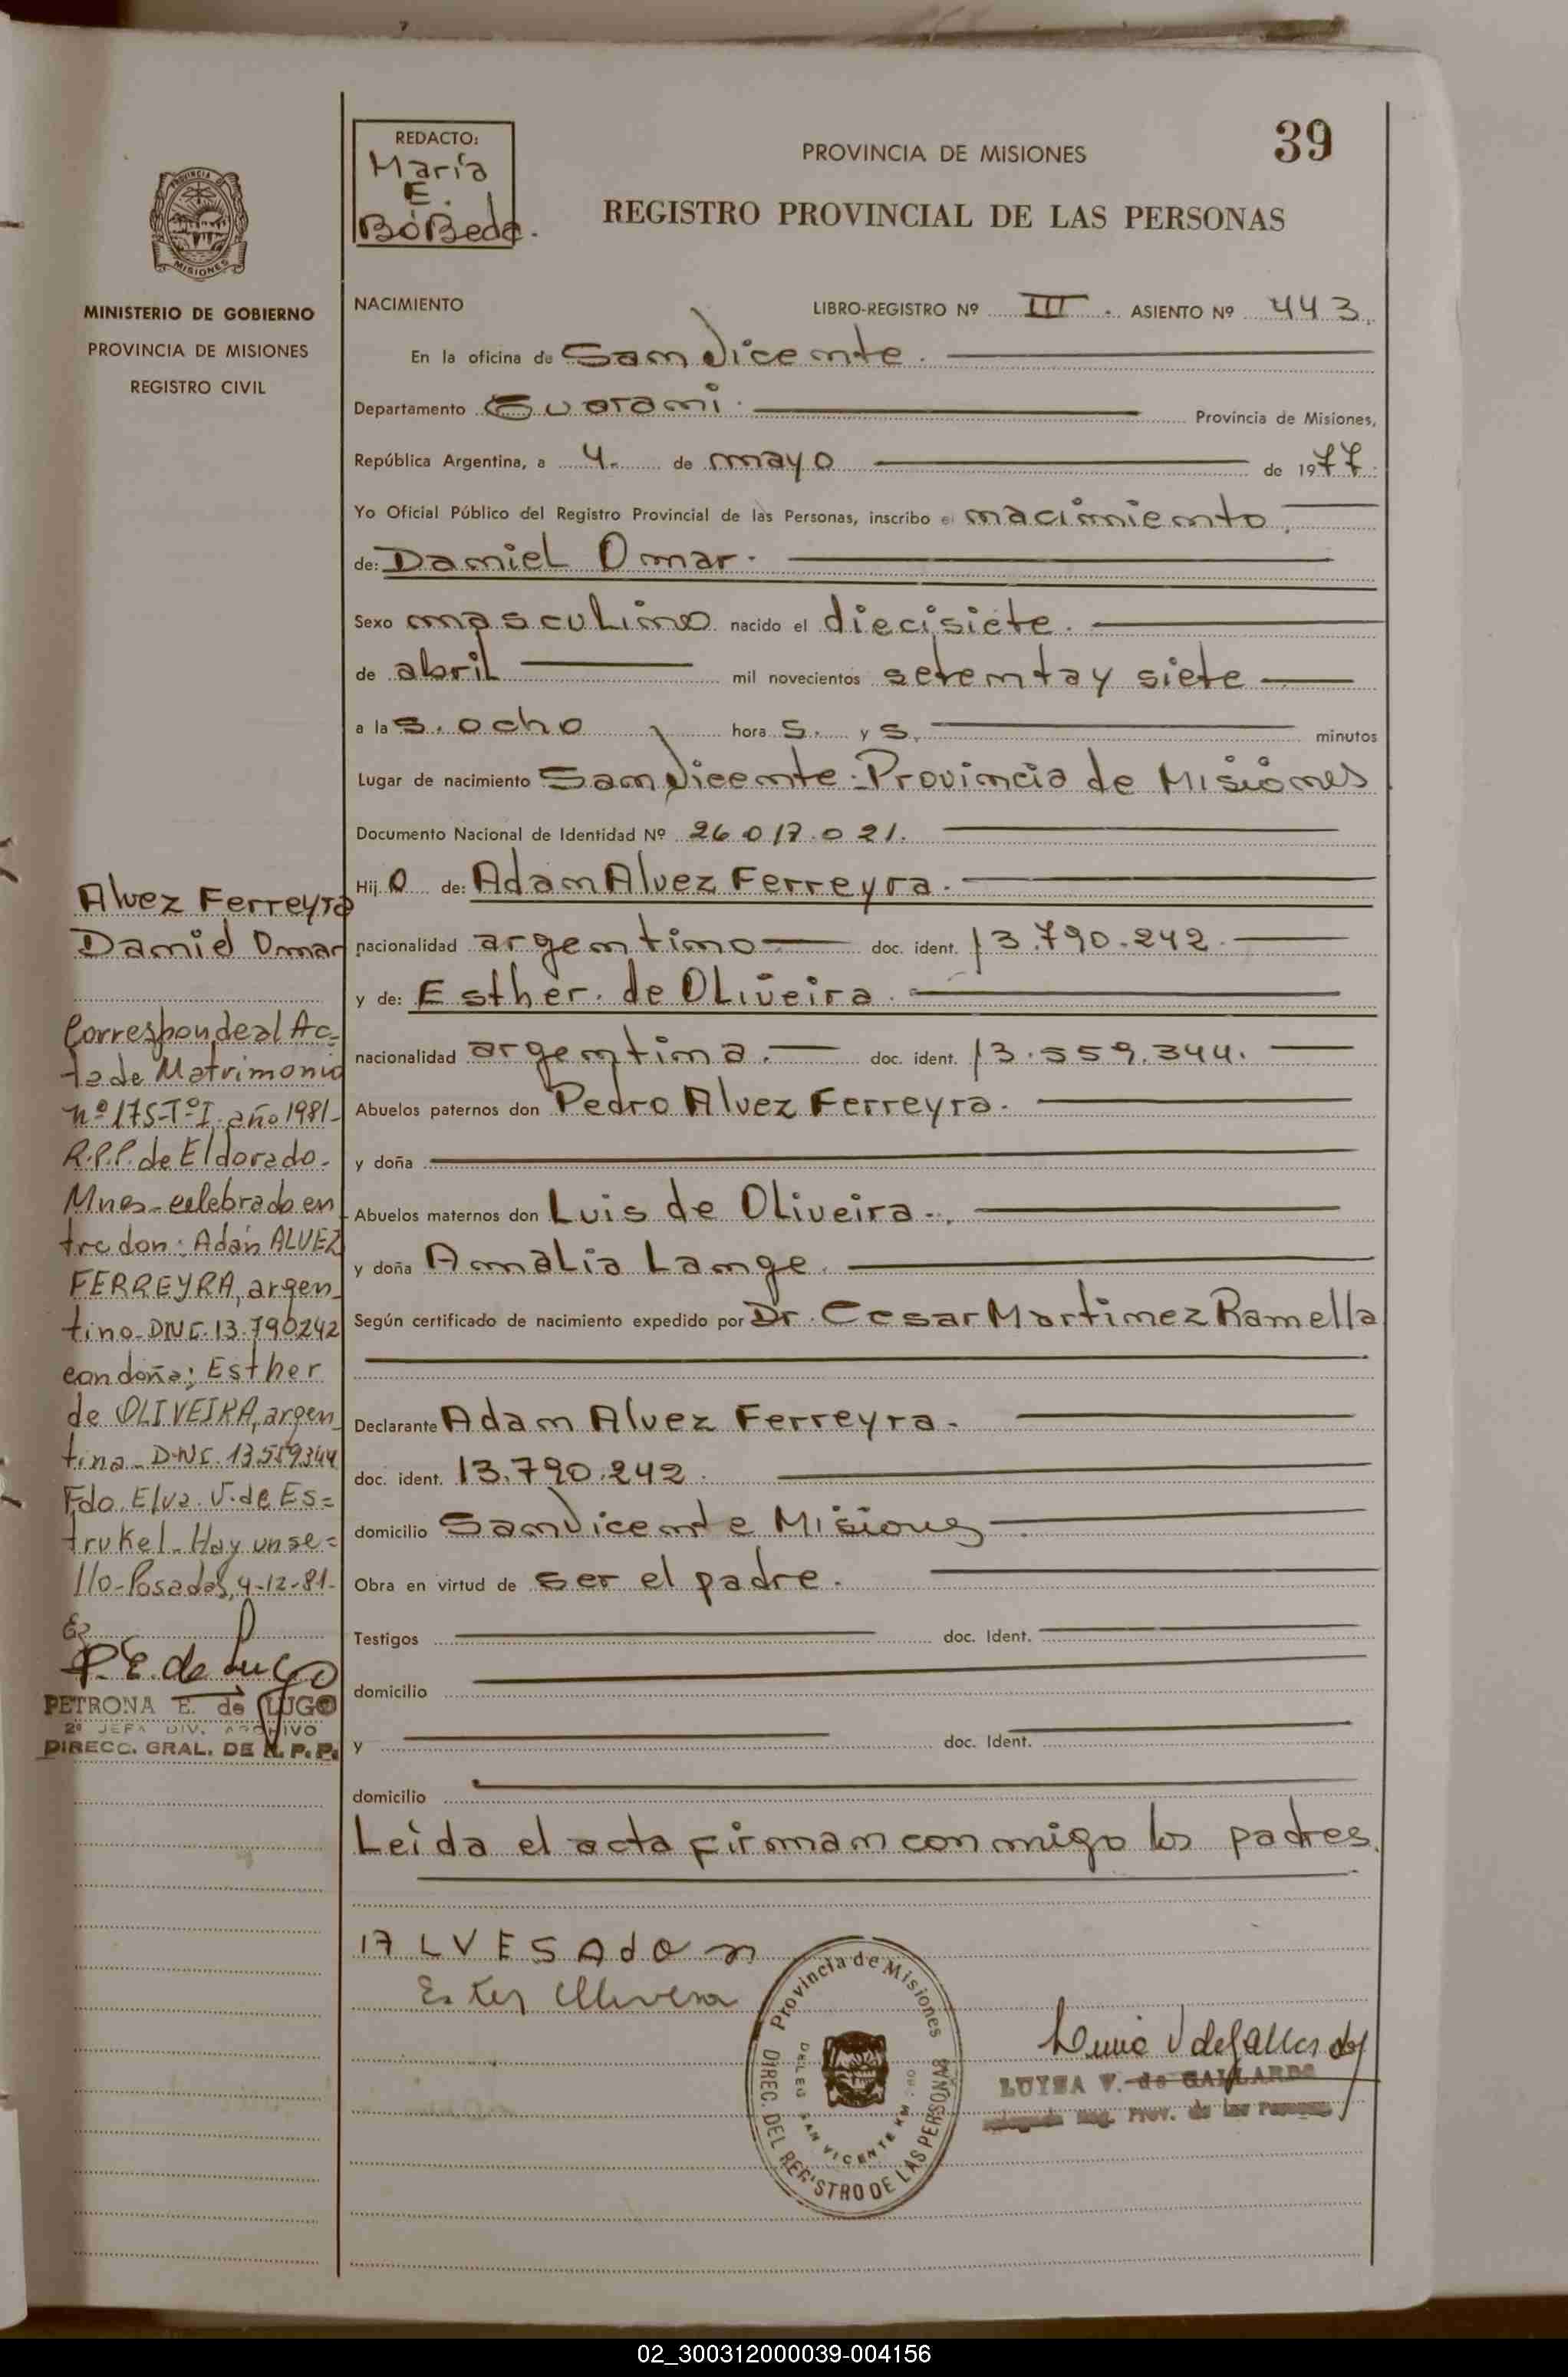 39
REDACTO:
María
E.
BóBeda.
PROVINCIA DE MISIONES
REGISTRO PROVINCIAL DE LAS PERSONAS
PROVINCIA DE
MISIONES
MINISTERIO DE GOBIERNO
PROVINCIA DE MISIONES
REGISTRO CIVIL
NACIMIENTO LIBRO-REGISTRO Nº III. ASIENTO Nº 443.
En la oficina de San Vicente.
Departamento Guarani. Provincia de Misiones,
República Argentina, a 4. de mayo de 1977.
Yo Oficial Público del Registro Provincial de las Personas, inscribo el nacimiento.
de: Daniel Omar.
Sexo masculino nacido el diecisiete.
de abril mil novecientos setenta y siete
a las. ocho hora s. y s. minutos
Lugar de nacimiento San Vicente.Provincia de Misiones
Documento Nacional de Identidad Nº 26.017.021.
Hijo de: Adam Alvez Ferreyra.
nacionalidad argentino doc. ident. 13.790.242.
y de: Esther. de Oliveira.
nacionalidad argentina. doc. ident. 13.559.344.
Abuelos paternos don Pedro Alvez Ferreyra.
y doña
Abuelos maternos don Luis de Oliveira.
y doña Amalia Lange.
Según certificado de nacimiento expedido por Dr. Cesar Martinez Ramella
Declarante Adam Alvez Ferreyra.
doc. ident. 13.790.242.
domicilio San Vicente Misiones
Obra en virtud de ser el padre.
Testigos doc. Ident.
domicilio
y doc. Ident.
domicilio
Leída el acta firman conmigo los padres.
Alvez Ferreyra
Daniel Omar
Corresponde al Ac-
ta de Matrimonio
nº 175-TºI. año 1981-
R.P.P. de Eldorado.
Mnes-celebrado en
tre don: Adán ALVEZ
FERREYRA, argen
tino-DNI.13.790242
con doña: Esther
de OLIVEIRA, argen
tina-DNI.13.559344
Fdo. Elva. V. de Es=
trukel-Hay un se=
llo-Posadas, 4-12-81-
P.E. de Lugo
PETRONA E. de LUGO
2º JEFA DIV. ARCHIVO
DIRECC. GRAL. DE R.P.P.
ALVES AdaN
Ester Olivera
Provincia de Misiones
DIREC. DEL REGISTRO DE LAS PERSONAS
DELEG SAN VICENTE KM
LUISA V. de GALLARDO
Reg. Prov. de las Personas
02_300312000039-004156